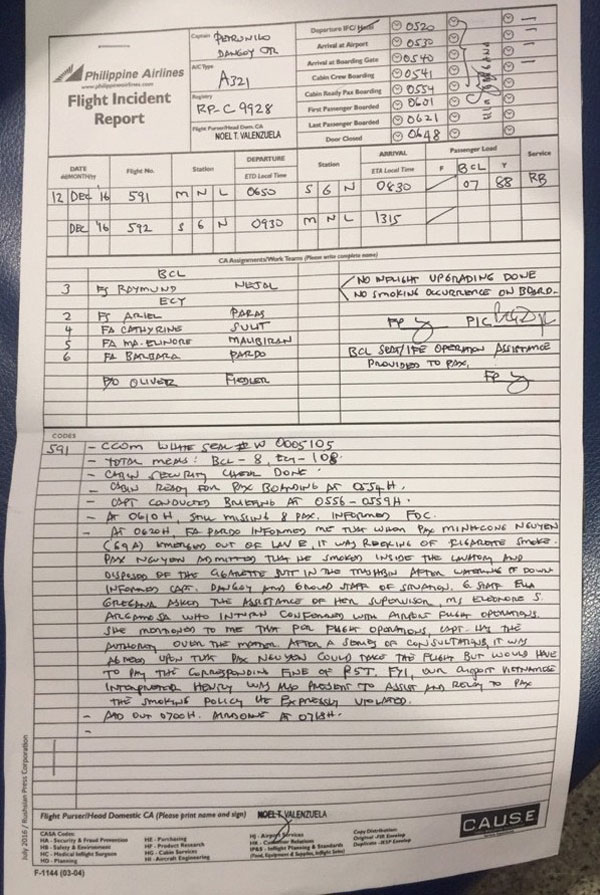 Captain PETRONILO
DANGOY JR.
Philippine Airlines
www.philippineairlines.com
Flight Incident
Report
A/C Type A321
Registry RP-C 9928
Flight Purser/Head Dom. CA
NOEL T. VALENZUELA
Departure IFC/Hotel 0520
Arrival at Airport 0530
Arrival at Boarding Gate 0540
Cabin Crew Boarding 0541
Cabin Ready Pax Boarding 0554
First Passenger Boarded 0601
Last Passenger Boarded 0621
Door Closed 0648
DATE Flight No. Station DEPARTURE Station ARRIVAL Passenger Load Service
ETD Local Time ETA Local Time F BCL Y
12 DEC '16 591 M N L 0650 S G N 0830 07 88 RB
DEC '16 592 S G N 0930 M N L 1315
CA Assignments/Work Teams (Please write complete name)
BCL
3 FS RAYMUND
ECY
2 FS ARIEL PARAS
4 FA CATHYRINE SULIT
5 FA MA. ELINORE MALIBIRAN
6 FA BARBARA PARDO
OLIVER FIEDLER
NO INFLIGHT UPGRADING DONE
NO SMOKING OCCURRENCE ON BOARD.
FP PIC
BCL SEAT/IFE OPERATION ASSISTANCE
PROVIDED TO PAX.
FP
CODES
591 - CCOM WHITE SEAL # W 0005105
- TOTAL MEALS: BCL - 8, ECY - 108.
- CABIN SECURITY CHECK DONE.
- CABIN READY FOR PAX BOARDING AT 0554H.
- CAPT CONDUCTED BRIEFING AT 0556-0559H.
- AT 0610H, STILL MISSING 8 PAX. INFORMED FDC.
- AT 0620H, FA PARDO INFORMED ME THAT WHEN PAX NGUYEN
(69A) EMERGED OUT OF LAV E, IT WAS REEKING OF CIGARETTE SMOKE.
PAX NGUYEN ADMITTED THAT HE SMOKED INSIDE THE LAVATORY AND
DISPOSED OF THE CIGARETTE BUTT IN THE TRASHBIN AFTER WATERING IT DOWN
INFORMED CAPT. DANGOY AND GROUND STAFF OF SITUATION. G. STAFF ELLA
ASKED THE ASSISTANCE OF HER SUPERVISOR, MS ELEONORE S.
ARGAMOSA WHO INTURN CONFERRED WITH AIRPORT FLIGHT OPERATIONS.
SHE MENTIONED TO ME THAT PER FLIGHT OPERATIONS, CAPT. HAS THE
AUTHORITY OVER THE MATTER. AFTER A SERIES OF CONSULTATIONS, IT WAS
AGREED UPON THAT PAX NGUYEN COULD TAKE THE FLIGHT BUT WOULD HAVE
TO PAY THE CORRESPONDING FINE OF PST. FYI, OUR AIRPORT VIETNAMESE
INTERPRETER HENRY WAS ALSO PRESENT TO ASSIST AND RELAY TO PAX
THE SMOKING POLICY HE EXPRESSLY VIOLATED.
- OUT 0700H. AIRBORNE AT 0713H.
-
Flight Purser/Head Domestic CA (Please print name and sign) NOEL T. VALENZUELA
CASA Codes:
HA - Security & Fraud Prevention
HB - Safety & Environment
HC - Medical Inflight Surgeon
HD - Planning
HE - Purchasing
HF - Product Research
HG - Cabin Services
HI - Aircraft Engineering
HJ - Airport Services
HK - Customer Relations
IP&S - Inflight Planning & Standards
(Food, Equipment & Supplies, Inflight Sales)
Copy Distribution:
Original - FIR Envelop
Duplicate - Envelop
CAUSE
F-1144 (03-04)
July 2016 / Rushsian Press Corporation